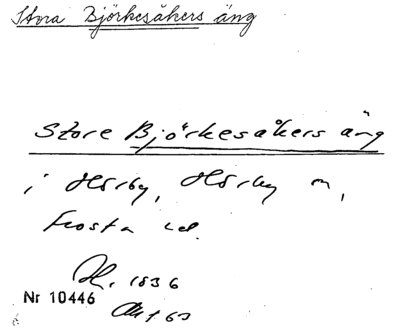 Stora Björkesåkers äng
Store Björkesåkers äng
i Hörby, Hörby sn,
Frosta hd.
1836
Nr 10446
Akt 63